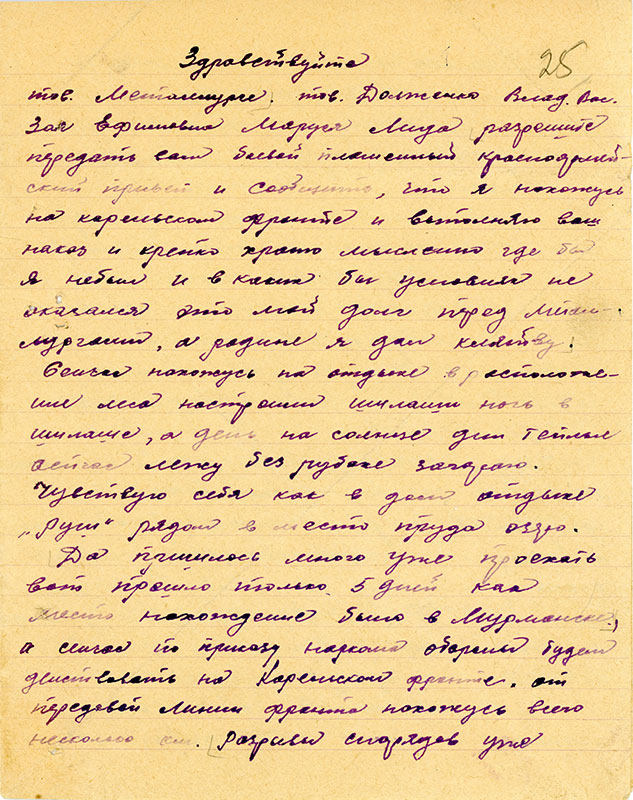 Здравствуйте
25
тов. Металлурги. тов. Долженко Влад. Вас.
Зоя Ефимовна Маруся Лида разрешите
передать вам боевой пламенный красноармей-
ский привет и сообщить, что я нахожусь
на карельском фронте и выполняю ваш
наказ и крепко храню мысленно где бы
я небыл и в каких бы условиях не
оказался это мой долг перед Метал-
лургами, а родине я дал клятву.
Сейчас нахожусь на отдыхе в расположе-
ние леса настроили шилаши ночь в
шилаше, а день на солнце дни теплые
сейчас лежу без рубахе загораю.
Чувствую себя как в доме отдыхе
„Руш" рядом в место пруда озеро.
Да пришлось много уже проехать
вот прошло только 5 дней как
место нахождение было в Мурманске,
а сейчас по приказу наркома обороны будем
действовать на Карельском фронте. от
передовой линии фронта нахожусь всего
несколько км. разрывы снарядов уже